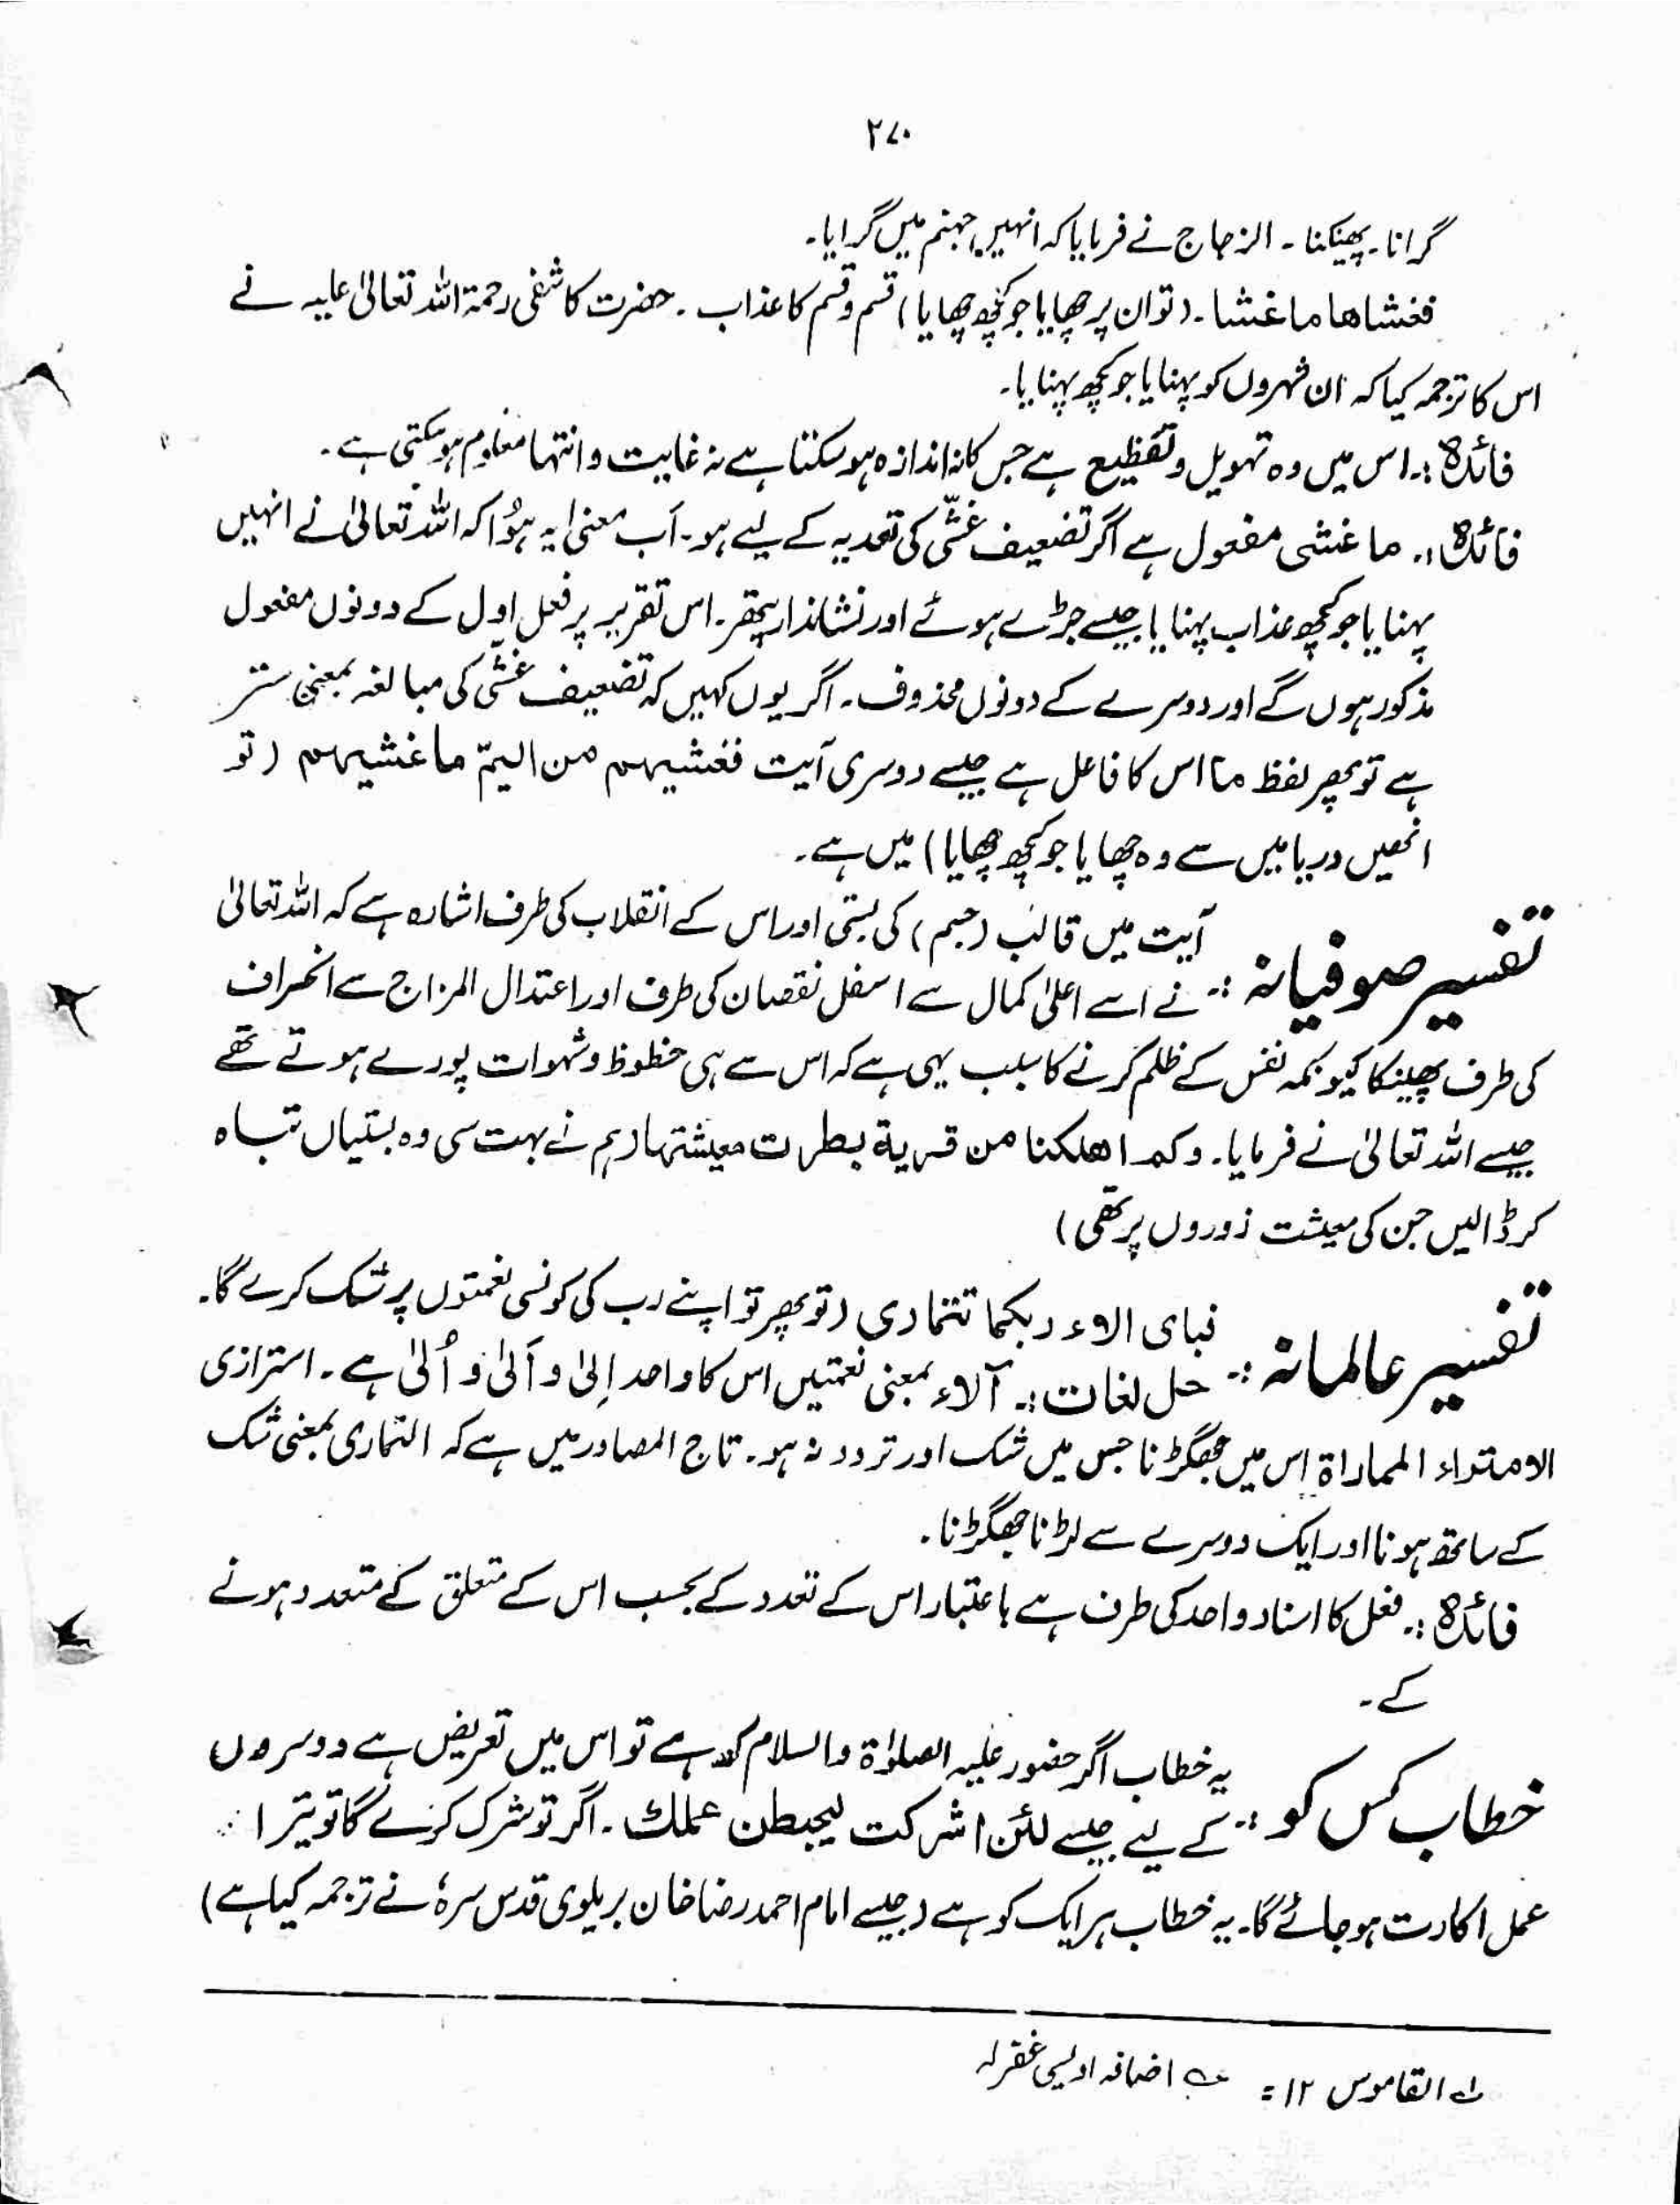 ۲۷۰
گرانا۔ پھینکنا۔ الزجاج نے فرمایا کہ انہیں جہنم میں گرایا۔
فغشاھا ما غشا۔ (تو ان پر چھایا جو کچھ چھایا) قسم و قسم کا عذاب۔ حضرت کاشفی رحمۃ اللہ تعالیٰ علیہ نے
اس کا ترجمہ کیا کہ ان شہروں کو پہنایا جو کچھ پہنایا۔
فائدہ :۔ اس میں وہ تہویل و تفظیع ہے جس کا نہ اندازہ ہو سکتا ہے نہ غایت و انتہا معلوم ہو سکتی ہے۔
فائدہ :۔ ما غشی مفعول ہے اگر تضعیف غشّٰی کی تعدیہ کے لیے ہو۔ اَب معنٰی یہ ہُوا کہ اللہ تعالیٰ نے انہیں
پہنایا جو کچھ عذاب پہنایا جیسے جڑے ہوئے اور نشاندار پتھر۔ اس تقریر پر فعل اوّل کے دونوں مفعول
مذکور ہوں گے اور دوسرے کے دونوں محذوف۔ اگر یوں کہیں کہ تضعیف غشّٰی کی مبالغہ بمعنی ستر
ہے تو پھر لفظ ما اس کا فاعل ہے جیسے دوسری آیت فغشیہم من الیمّ ما غشیہم (تو
انھیں دریا میں سے وہ چھایا جو کچھ چھایا) میں ہے۔
آیت میں قالب (جسم) کی بستی اور اس کے انقلاب کی طرف اشارہ ہے کہ اللہ تعالیٰ
تفسیر صوفیانہ :۔ نے اسے اعلیٰ کمال سے اسفل نقصان کی طرف اور اعتدال المزاج سے انحراف
کی طرف پھینکا کیونکہ نفس کے ظلم کرنے کا سبب یہی ہے کہ اس سے ہی حظوظ و شہوات پورے ہوتے تھے
جیسے اللہ تعالیٰ نے فرمایا۔ وکم اھلکنا من قریة بطرت معیشتہا (ہم نے بہت سی وہ بستیاں تباہ
کر ڈالیں جن کی معیشت زوروں پر تھی)
فبای الاء ربکما تتماری (تو پھر تو اپنے رب کی کونسی نعمتوں پر شک کرے گا۔
تفسیر عالمانہ :۔ حل لغات :۔ آلاء بمعنی نعمتیں اس کا واحد اِلیٰ و اَلیٰ و اُلیٰ ہے۔ استرازی
الامتراء المماراة اس میں جھگڑنا جس میں شک اور تردد نہ ہو۔ تاج المصادر میں ہے کہ التماری بمعنی شک
کے ساتھ ہونا اور ایک دوسرے سے لڑنا جھگڑنا۔
فائدہ :۔ فعل کا اسناد واحد کی طرف ہے باعتبار اس کے تعدد کے بحسب اس کے متعلق کے متعدد ہونے
کے۔
یہ خطاب اگر حضور علیہ الصلوٰۃ والسلام کو ہے تو اس میں تعریض ہے دوسروں
خطاب کس کو :۔ کے لیے جیسے لئن اشرکت لیحبطن عملك۔ اگر تو شرک کرے گا تو تیرا
عمل اکارت ہو جائے گا۔ یہ خطاب ہر ایک کو ہے (جیسے امام احمد رضا خان بریلوی قدس سرہٗ نے ترجمہ کیا ہے)
القاموس ۱۲ = اضافہ اویسی غفرلہ